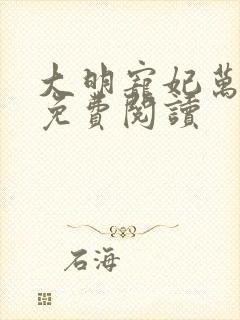 大明寵妃萬
免費閱讀
石海